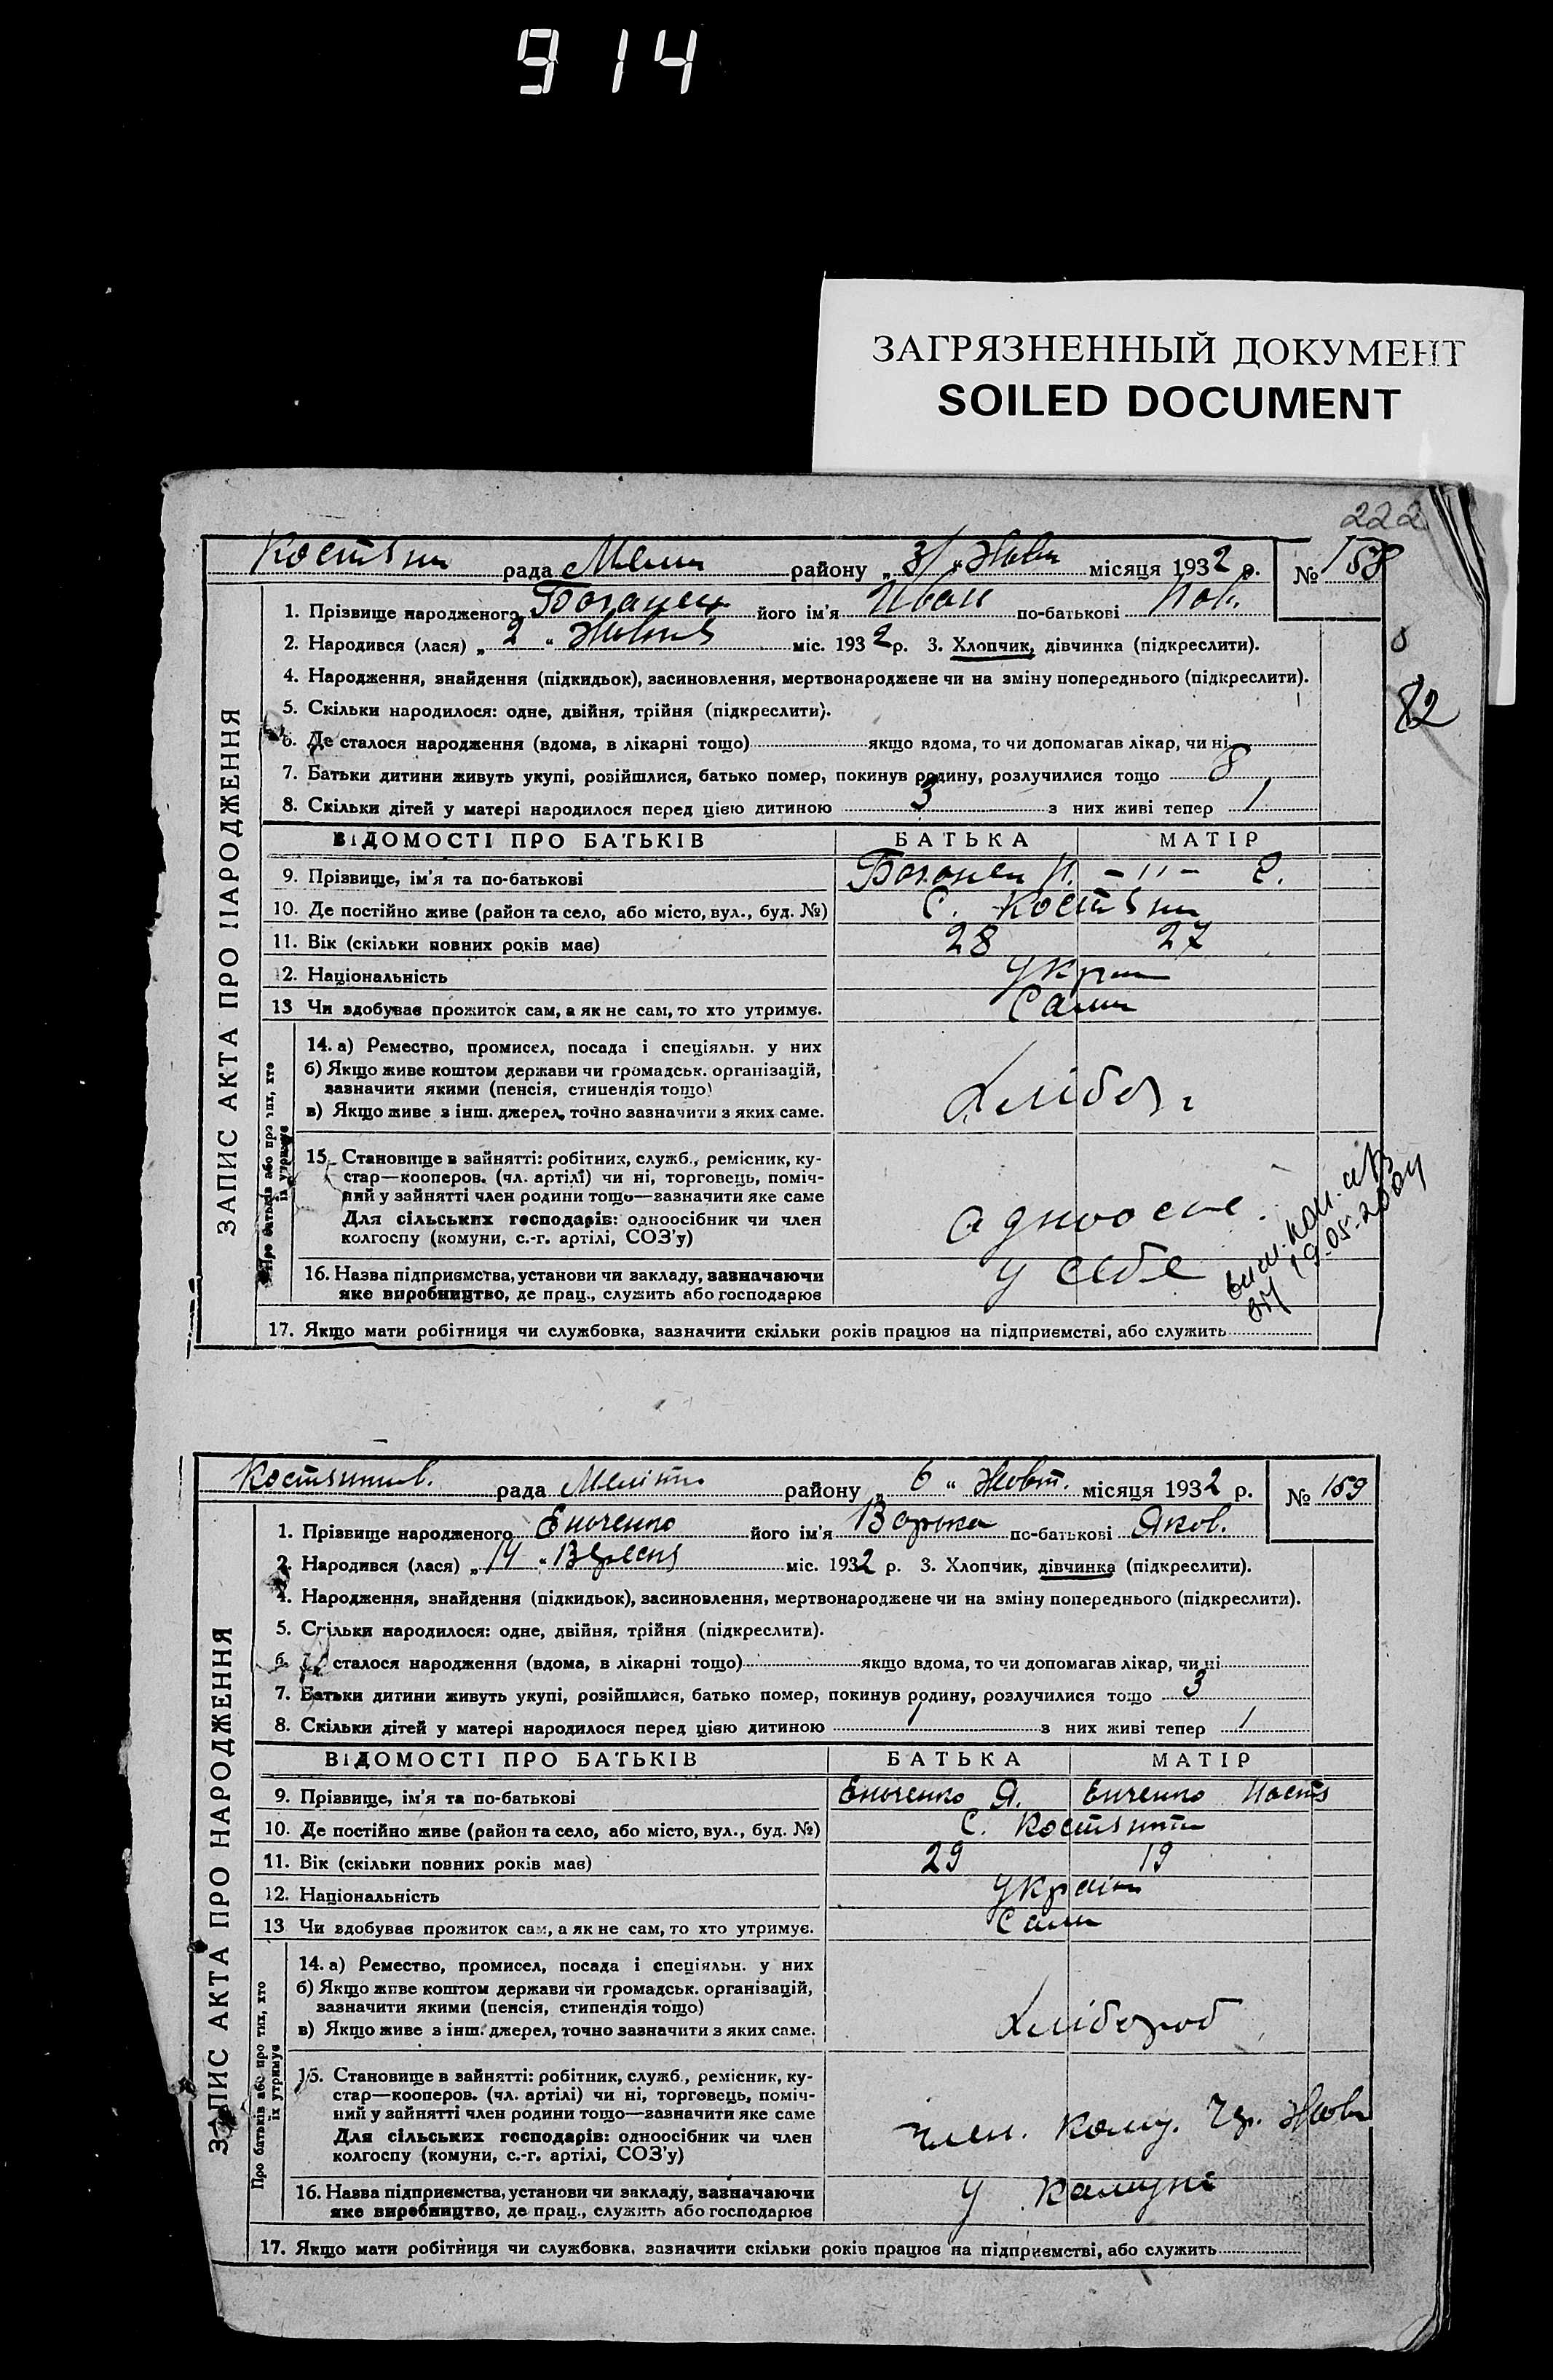 914
ЗАГРЯЗНЕННЫЙ ДОКУМЕНТ
SOILED DOCUMENT
222
рада района „31“ Жовт місяця 1932 р. № 158
ЗАПИС АКТА ПРО НАРОДЖЕННЯ
1. Прізвище народженого його ім'я Иван по-батькові
2. Народився (лася) „2“ міс. 1932 р. 3. Хлопчик, дівчинка (підкреслити).
4. Народження, знайдення (підкидьок), засиновлення, мертвонароджене чи на зміну попереднього (підкреслити).
5. Скільки народилося: одне, двійня, трійня (підкреслити).
82
6. Де сталося народження (вдома, в лікарні тощо) якщо вдома, то чи допомагав лікар, чи ні
7. Батьки дитини живуть укупі, розійшлися, батько помер, покинув родину, розлучилися тощо 8
8. Скільки дітей у матері народилося перед цією дитиною 3 з них живі тепер 1
ВІДОМОСТІ ПРО БАТЬКІВ БАТЬКА МАТІР
9. Прізвище, ім'я та по-батькові – " –
10. Де постійно живе (район та село, або місто, вул., буд. №) С.
11. Вік (скільки повних років має) 28 27
12. Національність Укра
13 Чи здобував прожиток сам, а як не сам, то хто утримує. Сами
Про батьків або про тих, хто їх утримує
14. а) Ремество, промисел, посада і спеціяльн. у них
б) Якщо живе коштом держави чи громадськ. організацій,
зазначити якими (пенсія, стипендія тощо)
в) Якщо живе з інш. джерел, точно зазначити з яких саме.
Хлібор
15. Становище в зайнятті: робітник, служб., ремісник, ку-
стар—кооперов. (чл. артілі) чи ні, торговець, поміч-
ний у зайнятті член родини тощо—зазначити яке саме
Для сільських господарів: одноосібник чи член
колгоспу (комуни, с.-г. артілі, СОЗ'у)
одноосне
16. Назва підприємства, установи чи закладу, зазначаючи
яке виробництво, де прац., служить або господарює
у себе
19.05.2004
17. Якщо мати робітниця чи службовка, зазначити скільки років працює на підприємстві, або служить
рада району „6“ Жовт. місяця 1932 р. № 159
ЗАПИС АКТА ПРО НАРОДЖЕННЯ
1. Прізвище народженого його ім'я Варька по-батькові Яков.
2. Народився (лася) „14“ Вересня міс. 1932 р. 3. Хлопчик, дівчинка (підкреслити).
4. Народження, знайдення (підкидьок), засиновлення, мертвонароджене чи на зміну попереднього (підкреслити).
5. Скільки народилося: одне, двійня, трійня (підкреслити).
6. сталося народження (вдома, в лікарні тощо) якщо вдома, то чи допомагав лікар, чи ні
7. Батьки дитини живуть укупі, розійшлися, батько помер, покинув родину, розлучилися тощо 3
8. Скільки дітей у матері народилося перед цією дитиною 1 з них живі тепер 1
ВІДОМОСТІ ПРО БАТЬКІВ БАТЬКА МАТІР
9. Прізвище, ім'я та по-батькові Я.
10. Де постійно живе (район та село, або місто, вул., буд. №) С.
11. Вік (скільки повних років має) 29 19
12. Національність Україн
13 Чи здобував прожиток сам, а як не сам, то хто утримує. Сами
Про батьків або про тих, хто їх утримує
14. а) Ремество, промисел, посада і спеціяльн. у них
б) Якщо живе коштом держави чи громадськ. організацій,
зазначити якими (пенсія, стипендія тощо)
в) Якщо живе з інш. джерел, точно зазначити з яких саме.
Хлібороб
15. Становище в зайнятті: робітник, служб., ремісник, ку-
стар—кооперов. (чл. артілі) чи ні, торговець, поміч-
ний у зайнятті член родини тощо—зазначити яке саме
Для сільських господарів: одноосібник чи член
колгоспу (комуни, с.-г. артілі, СОЗ'у)
член. кому. Чр. Жовт
16. Назва підприємства, установи чи закладу, зазначаючи
яке виробництво, де прац., служить або господарює
у комуні
17. Якщо мати робітниця чи службовка, зазначити скільки років працює на підприємстві, або служить